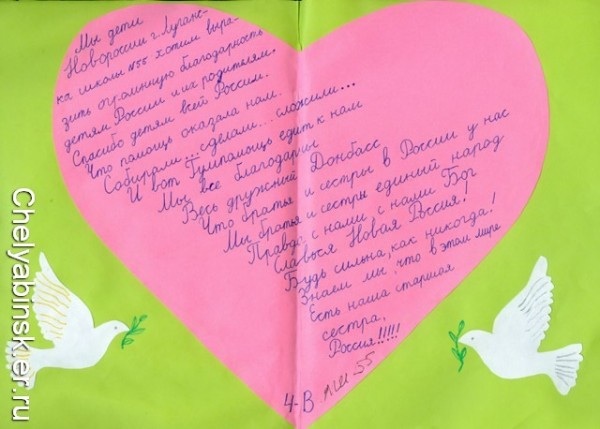 Мы дети
Новороссии г. Луганс-
ка школы №55 хотим выра-
зить огромную благодарность
детям России и их родителям.
Спасибо детям всей России.
Что помощь оказала нам.
Собирали... сделали... сложили...
И вот Гумпомощь едит к нам
Мы все благодарны
Весь дружный Донбасс
Что братья и сестры в России у нас
Мы братья и сестры единий народ
Правда с нами с нами Бог
Славься Новая Россия!
Будь сильна, как никогда!
Знаем мы, что в этом мире
Есть наша старшая
сестра,
Россия!!!!!
4-В ЛШ-55
Chelyabinskler.ru